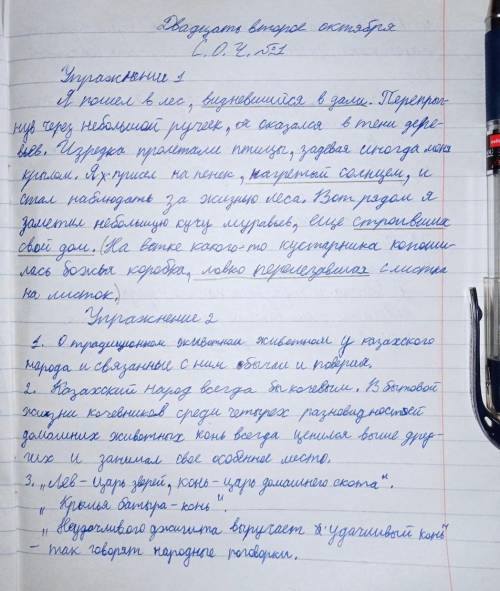 Двадцать второе октября
С.О.Ч. №1
Упражнение 1
Я пошел в лес, видневшийся в дали. Перепрыг-
нув через небольшой ручеек, я оказался в тени дере-
вьев. Изредка пролетали птицы, задевая иногда меня
крылом. Я присел на пенек, нагретый солнцем, и
стал наблюдать за жизнью леса. Вот рядом я
заметил небольшую кучу муравьев, еще строивших
свой дом. (На ветке какого-то кустарника копоши-
лась божья коробка, ловко перелезавшая с листка
на листок)
Упражнение 2
1. О традиционном животном животном у казахского
народа и связанные с ним обычаи и поверия.
2. Казахский народ всегда был кочевым. В бытовой
жизни кочевников среди четырех разновидностей
домашних животных конь всегда ценился выше друг-
их и занимал свое особенное место.
3. „Лев - царь зверей, конь - царь домашнего скота".
„Крылья батыра - конь".
„Неудачливого джигита выручает удачливый конь"
- так говорят народные поговорки.